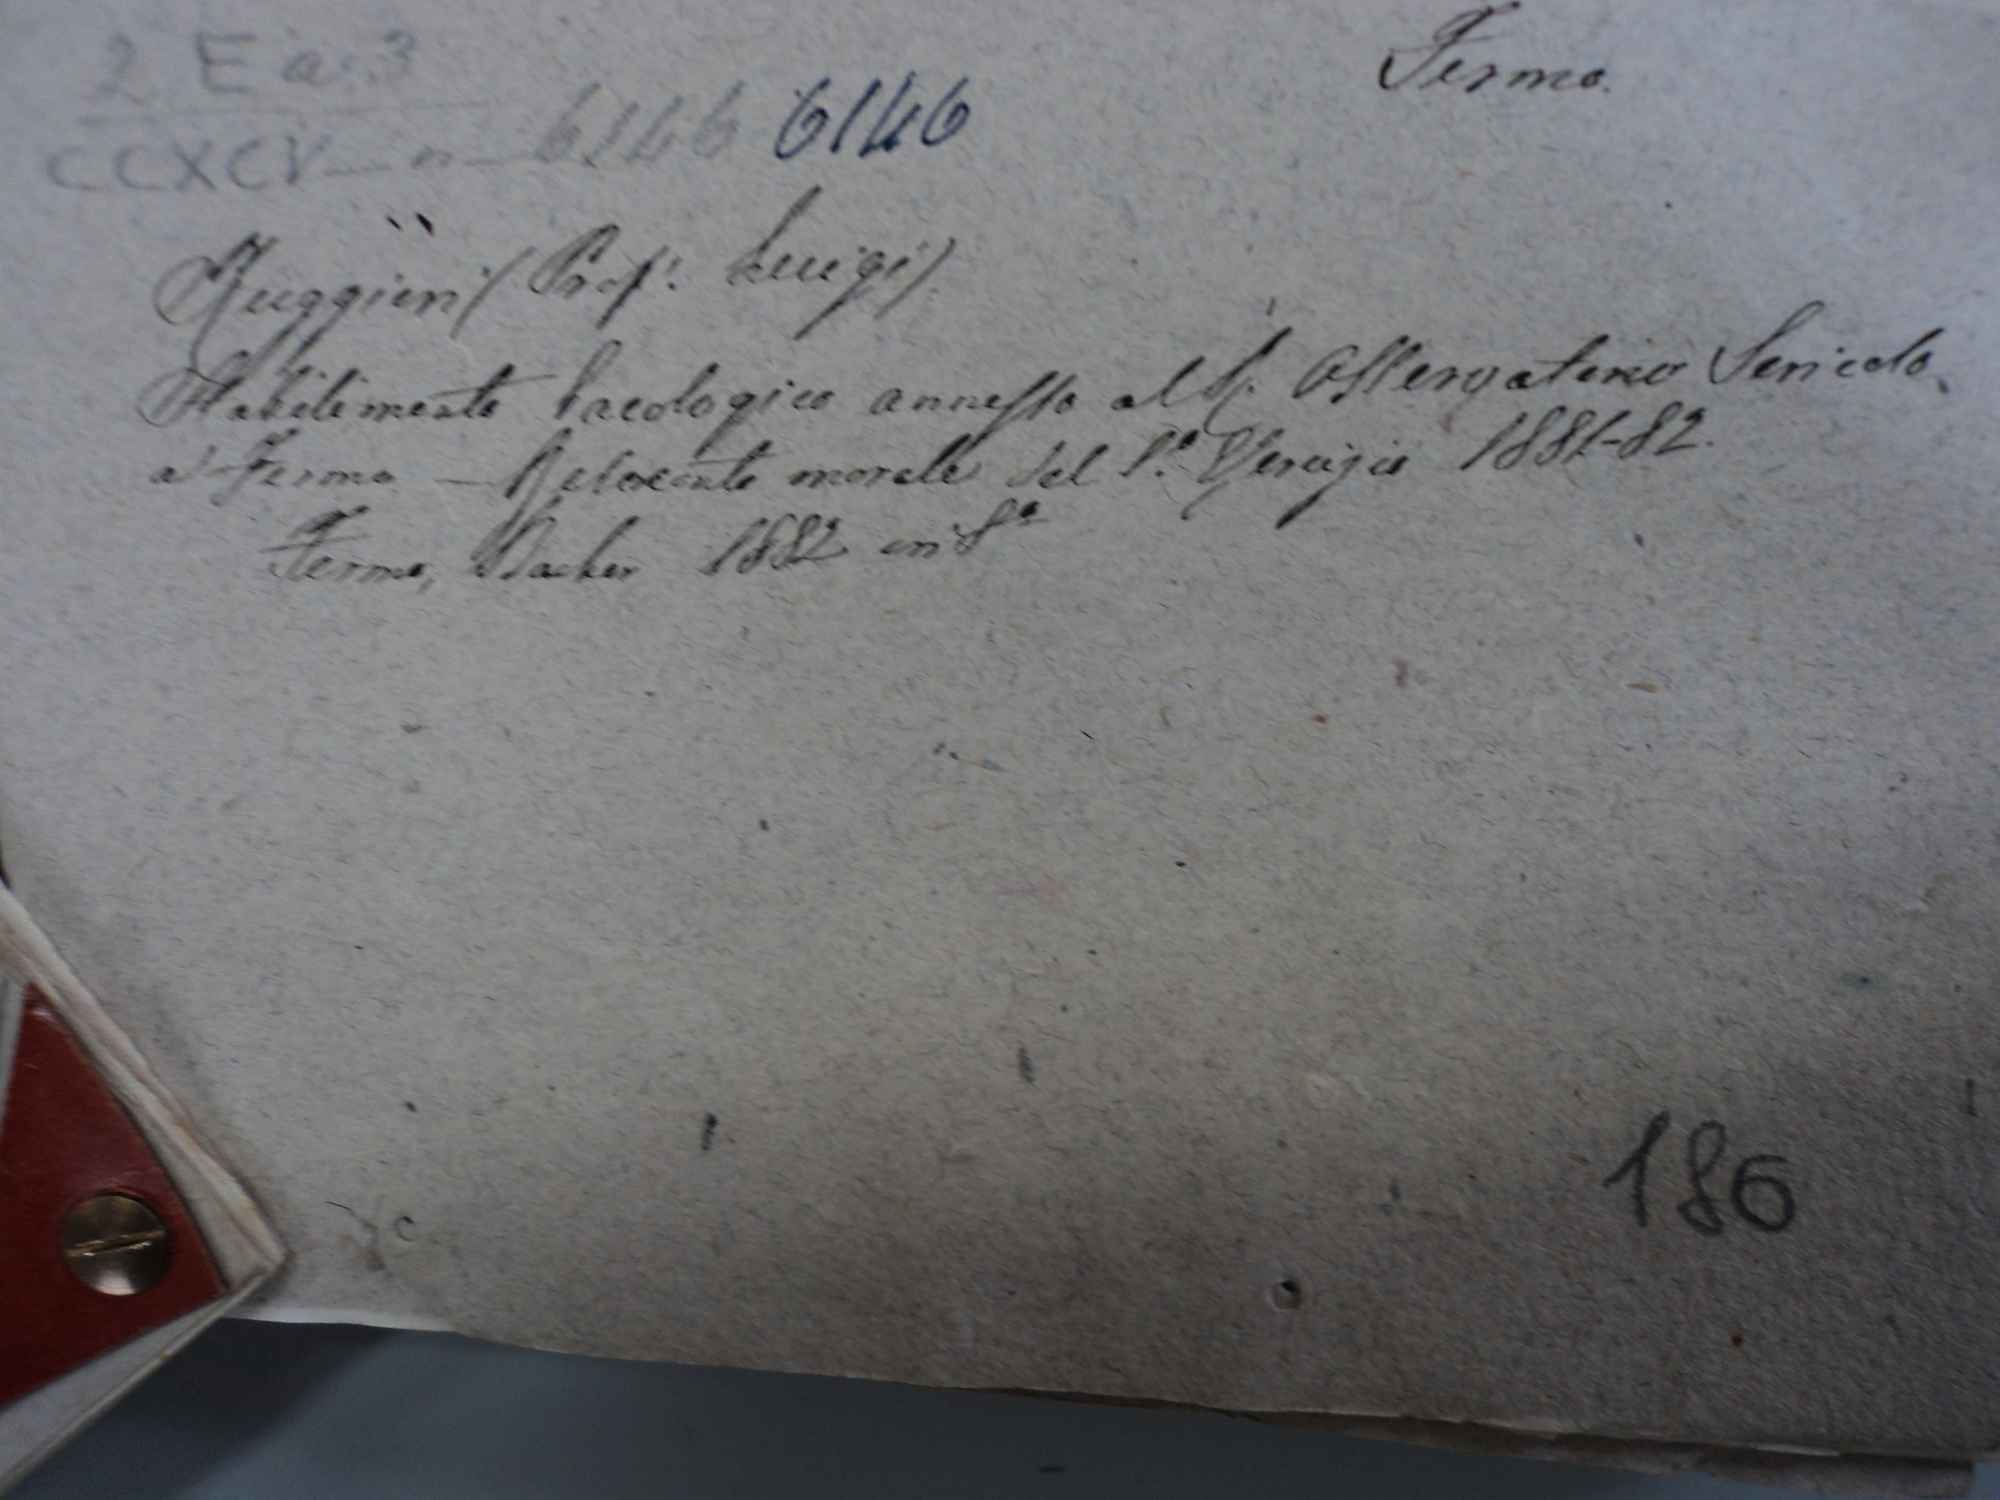 Fermo.
2 E a. 3
CCXCV - n - 6146 6146
Ruggieri (Prof. Luigi).
Stabilimento bacologico annesso al R. Osservatorio Sericolo,
a Fermo — Resoconto morale del 1.º Esercizio 1881-82.
Fermo, Bacher 1882 in 8º
186